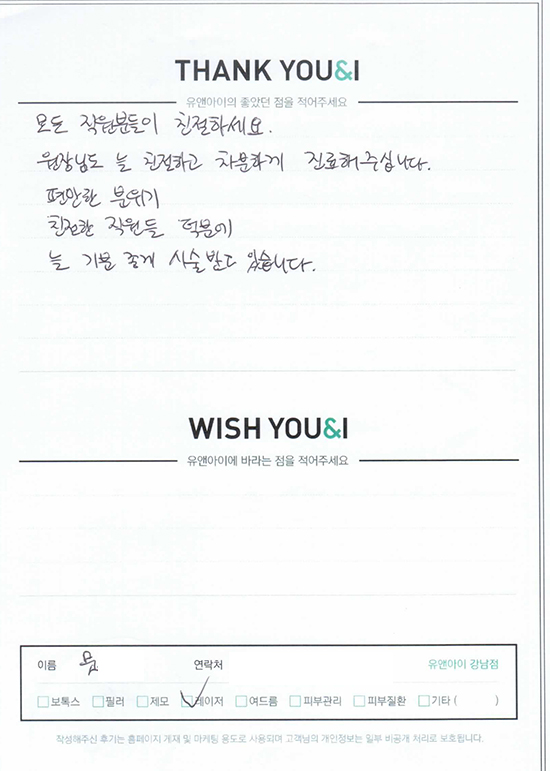 THANK YOU&I
유앤아이의 좋았던 점을 적어주세요
모든 직원분들이 친절하세요.
원장님도 늘 친절하고 차분하게 진료해주십니다.
편안한 분위기
친절한 직원들 덕분에
늘 기분 좋게 시술받고 있습니다.
WISH YOU&I
유앤아이에 바라는 점을 적어주세요
이름 연락처 유앤아이 강남점
보톡스 필러 제모 레이저 여드름 피부관리 피부질환 기타 ( )
작성해주신 후기는 홈페이지 게재 및 마케팅 용도로 사용되며 고객님의 개인정보는 일부 비공개 처리로 보호됩니다.